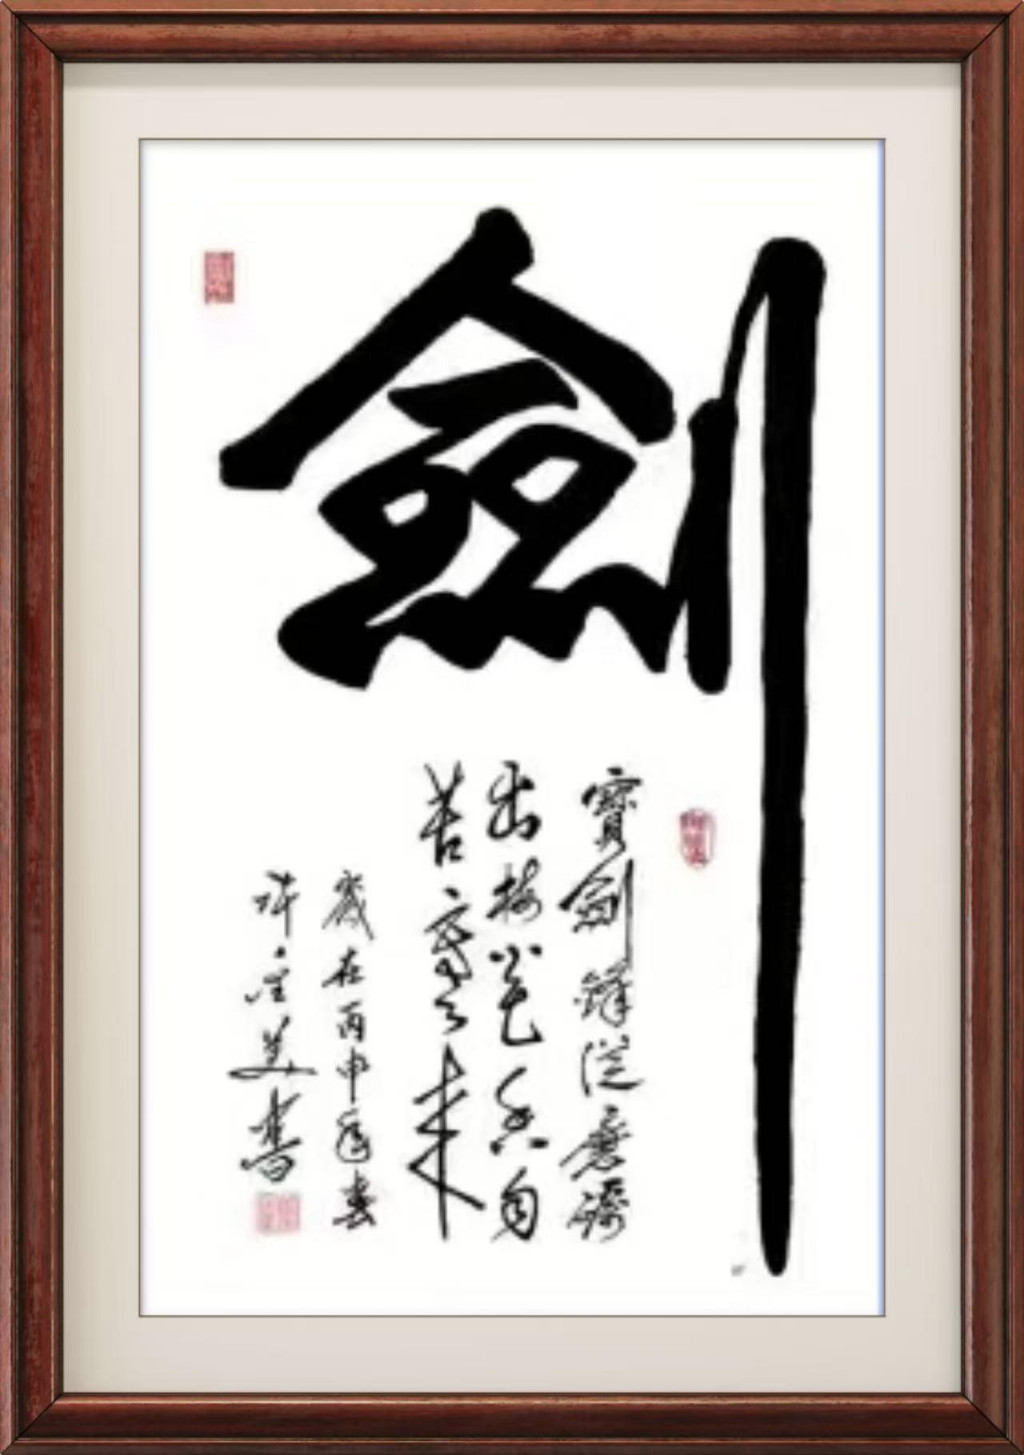 劍
寶劍鋒從磨礪
出梅花香自
苦寒來
歲在丙申年春
許金美書